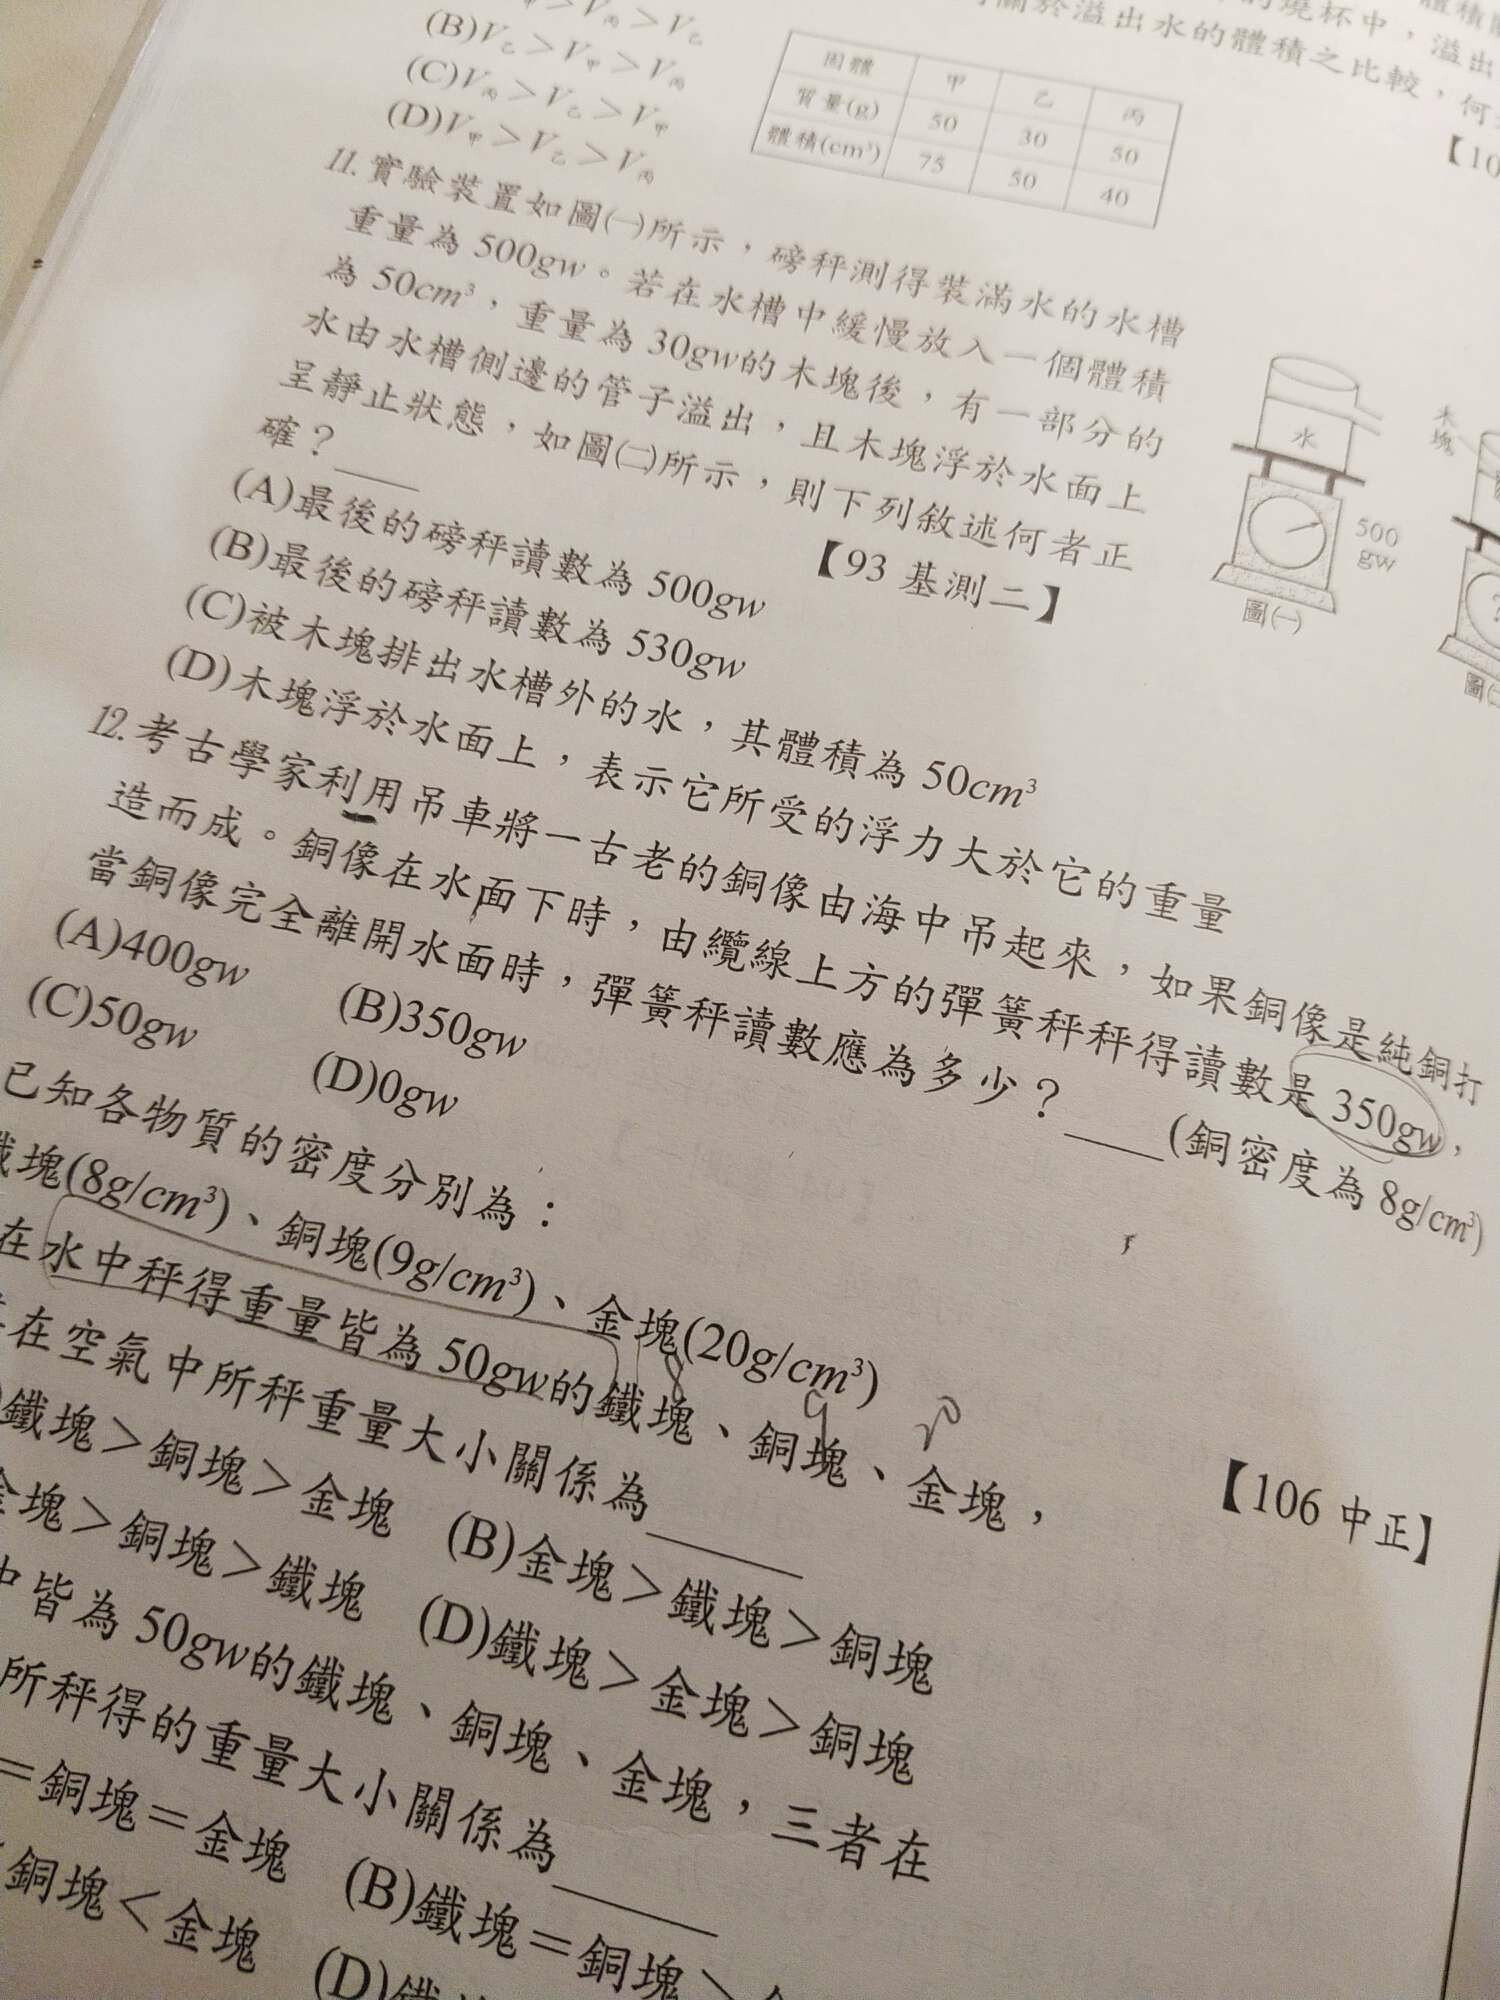 >V丙>V乙
體積
(B)V乙>V甲>V丙
的燒杯中，溢出
(C)V丙>V乙>V甲
關於溢出水的體積之比較，何
(D)V甲>V乙>V丙
【10
固體 甲 乙 丙
質量(g) 50 30 50
體積(cm³) 75 50 40
11.實驗裝置如圖㈠所示，磅秤測得裝滿水的水槽
重量為500gw。若在水槽中緩慢放入一個體積
為50cm³，重量為30gw的木塊後，有一部分的
水由水槽側邊的管子溢出，且木塊浮於水面上
呈靜止狀態，如圖㈡所示，則下列敘述何者正
確？____
【93 基測二】
(A)最後的磅秤讀數為500gw
(B)最後的磅秤讀數為530gw
(C)被木塊排出水槽外的水，其體積為50cm³
(D)木塊浮於水面上，表示它所受的浮力大於它的重量
水
500
gw
圖㈠
木塊
?
圖㈡
12.考古學家利用吊車將一古老的銅像由海中吊起來，如果銅像是純銅打
造而成。銅像在水面下時，由纜線上方的彈簧秤秤得讀數是350gw，
當銅像完全離開水面時，彈簧秤讀數應為多少？____(銅密度為8g/cm³)
(A)400gw (B)350gw
(C)50gw (D)0gw
已知各物質的密度分別為：
鐵塊(8g/cm³)、銅塊(9g/cm³)、金塊(20g/cm³)
在水中秤得重量皆為50gw的鐵塊、銅塊、金塊，
8 9 20
在空氣中所秤重量大小關係為____
【106 中正】
鐵塊>銅塊>金塊 (B)金塊>鐵塊>銅塊
金塊>銅塊>鐵塊 (D)鐵塊>金塊>銅塊
中皆為50gw的鐵塊、銅塊、金塊，三者在
所秤得的重量大小關係為____
=銅塊=金塊 (B)鐵塊=銅塊>
銅塊<金塊 (D)鐵